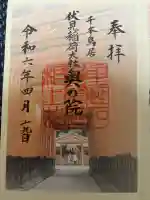 奉拝
千本鳥居
伏見稲荷大社
奥の院
令和六年四月